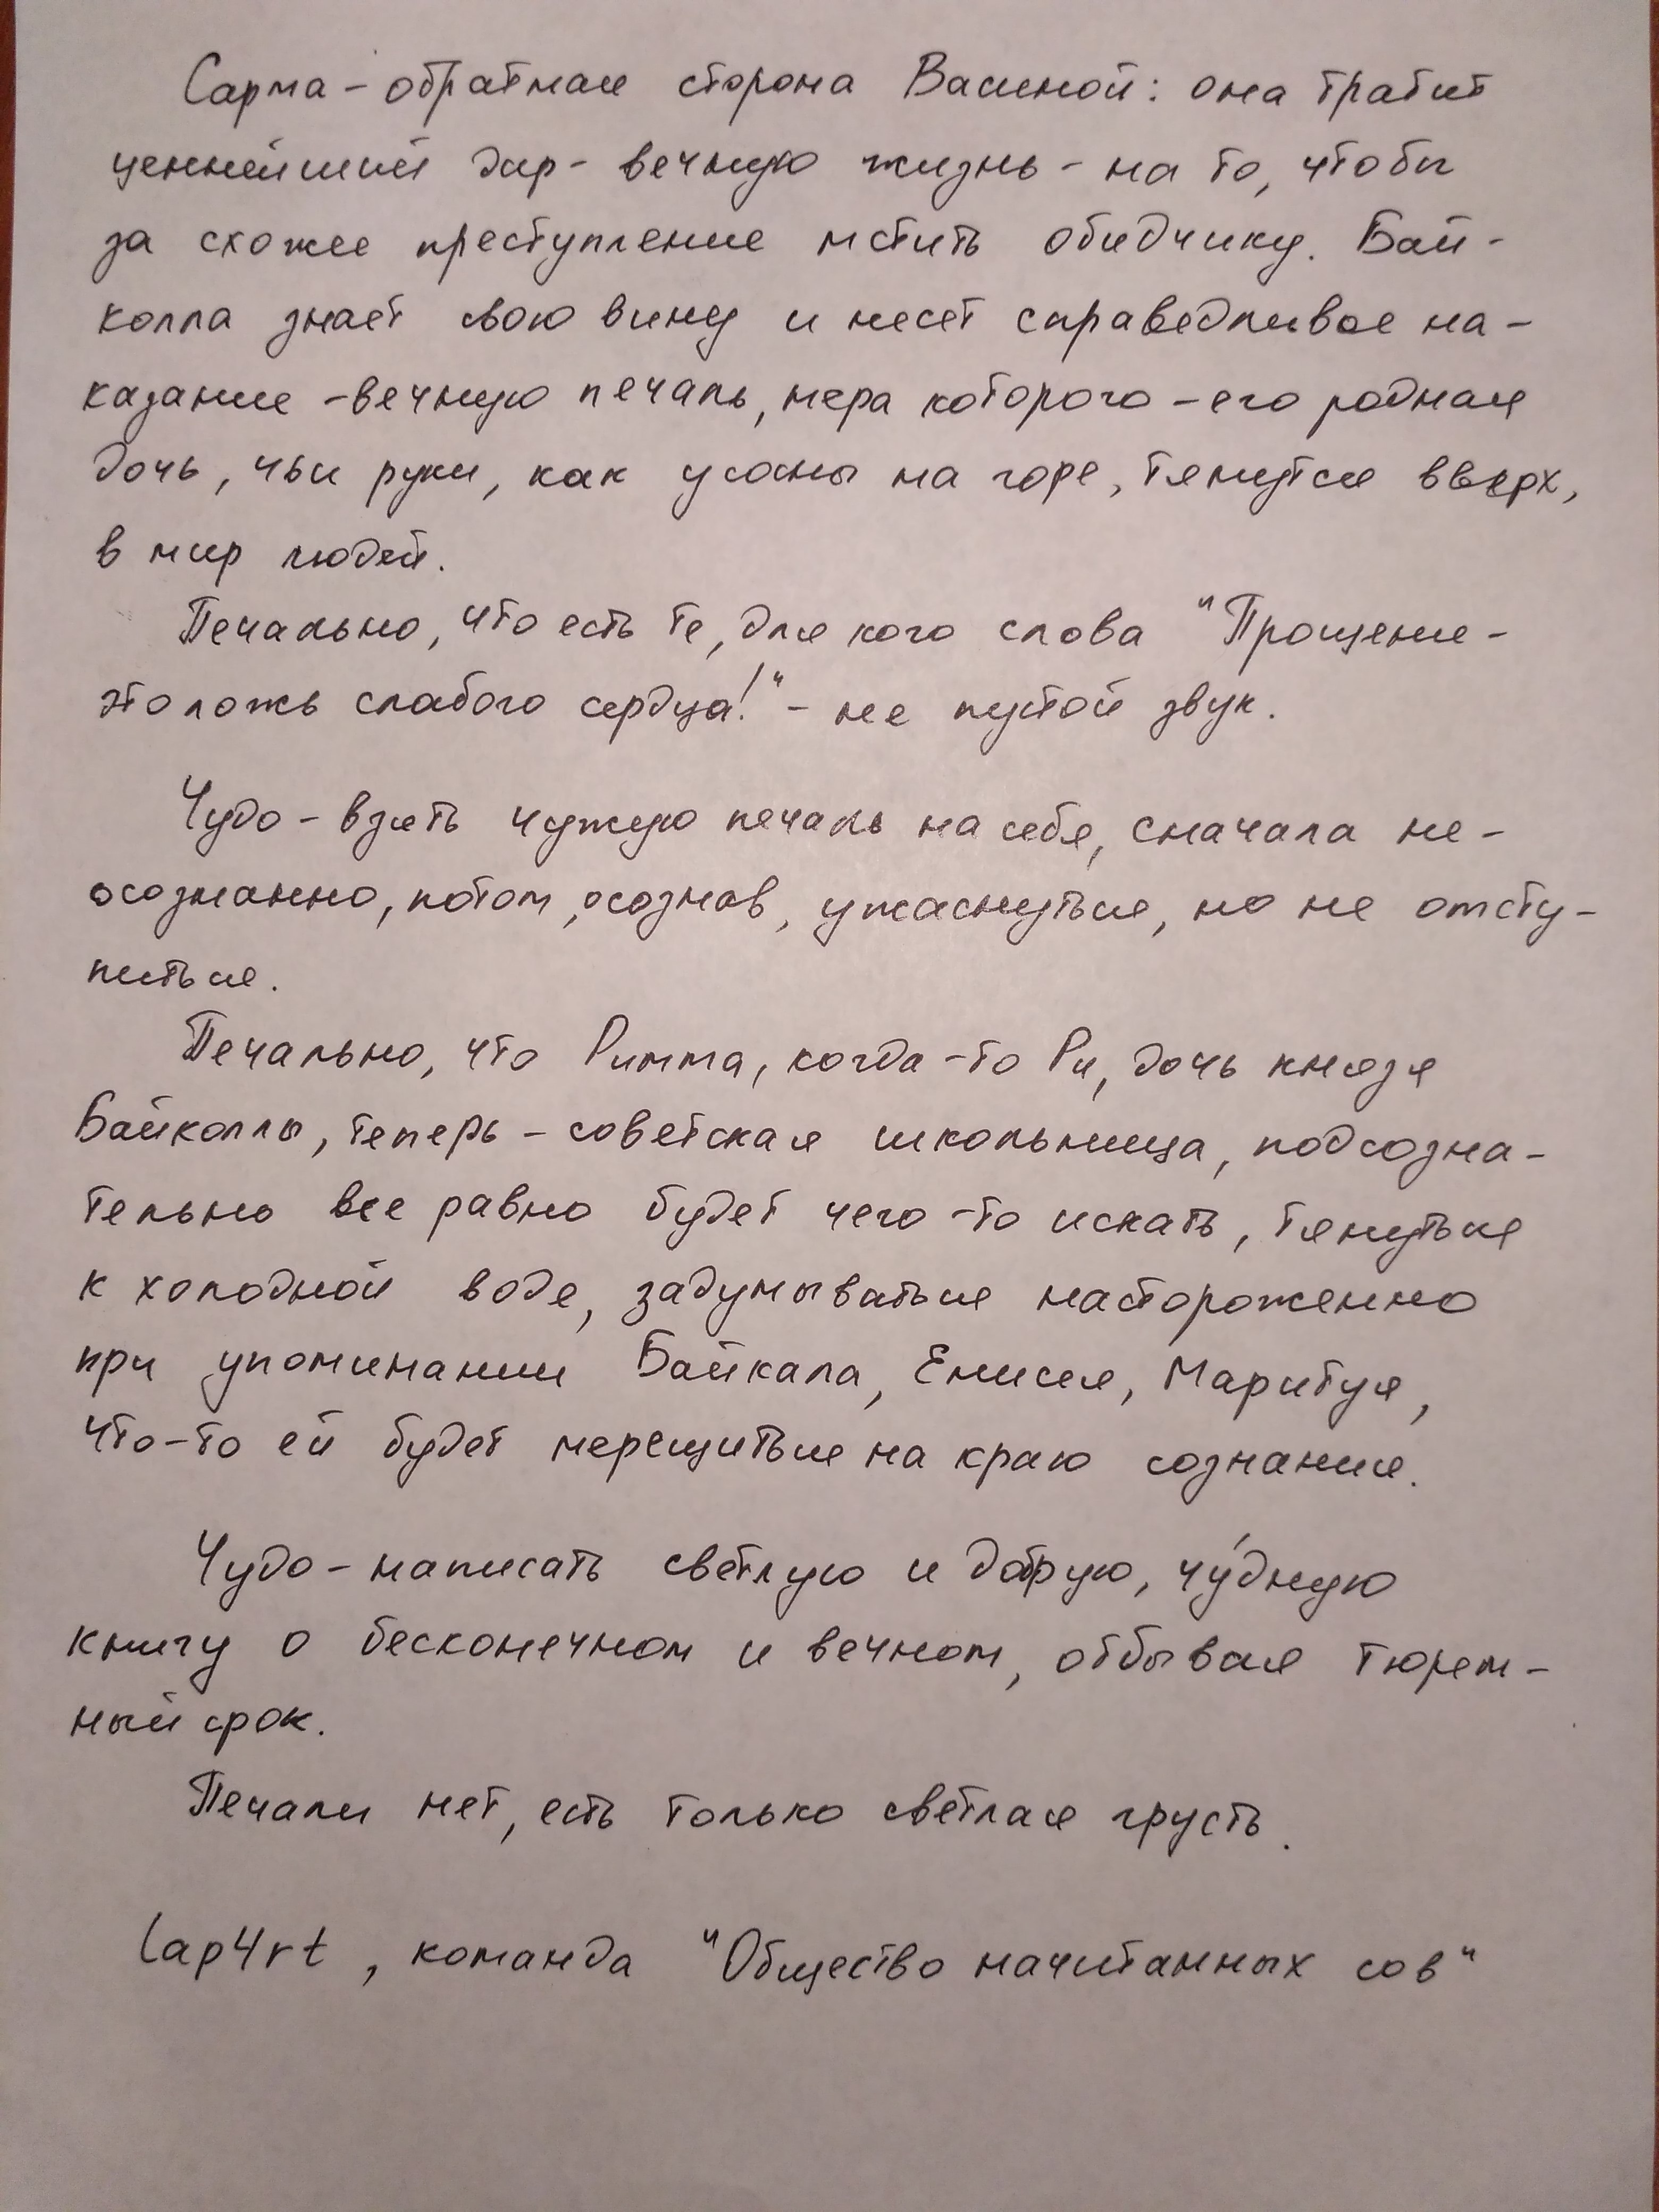 Сарма - обратная сторона Васиной: она тратит
ценнейший дар - вечную жизнь - на то, чтобы
за схожее преступление мстить обидчику. Бай-
колла знает свою вину и несет справедливое на-
казание - вечную печаль, мера которого - его родная
дочь, чьи руки, как усоны на горе, тянутся вверх,
в мир людей.
Печально, что есть те, для кого слова "Прощение -
это ложь слабого сердца!" - не пустой звук.
Чудо - взять чужую печаль на себя, сначала не-
осознанно, потом, осознав, ужаснуться, но не отсту-
питься.
Печально, что Римма, когда-то Ри, дочь князя
Байколлы, теперь - советская школьница, подсозна-
тельно все равно будет чего-то искать, тянуться
к холодной воде, задумываться настороженно
при упоминании Байкала, Енисея, Маритуя,
что-то ей будет мерещиться на краю сознания.
Чудо - написать светлую и добрую, чу́дную
книгу о бесконечном и вечном, отбывая тюрем-
ный срок.
Печали нет, есть только светлая грусть.
lap4rt, команда "Общество начитанных сов"